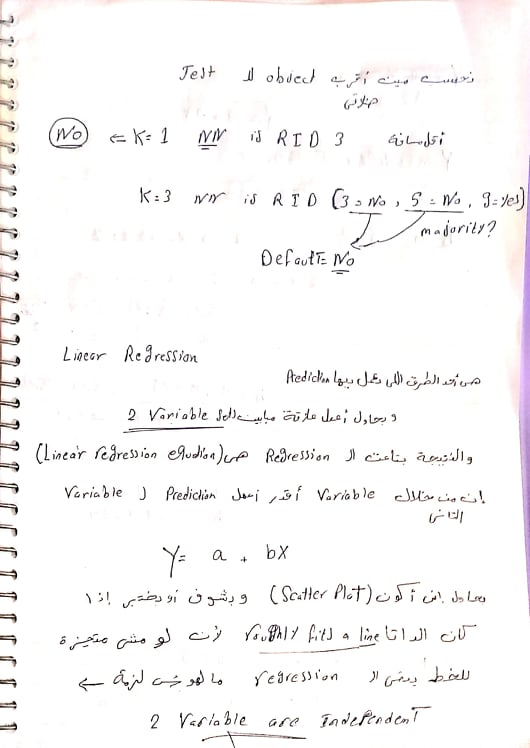 نحسب مين أقرب object لـ Test
أقل مسافة K=1 NN is RID 3 ⇐ No
K=3 NN is RID (3=No, 5=No, 9=Yes)
majority?
Default= No
Linear Regression
هى أحد الطرق اللى بعمل بيها Prediction
و بحاول أعمل علاقة مابين الـ 2 Variable
والنتيجة بتاعت الـ Regression هى (Linear regression equation)
إن من خلال Variable أقدر أعمل Prediction لـ Variable
التانى
Y= a + bX
بحاول إنى أكون (Scatter Plot) و بشوف أو بختبر إذا
كان الداتا roughly fits a line لأن لو مش متحيزة
للخط يبقى الـ regression مالهوش لزمة ←
2 Variable are Independent